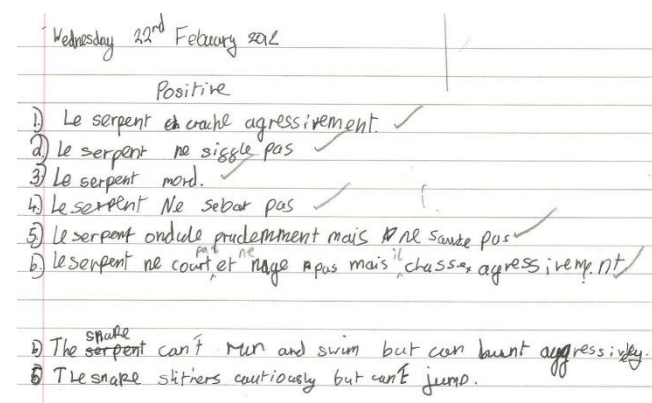 Wednesday 22nd Febuary 2012
Positive
1.) Le serpent crache agressivement.
2.) Le serpent ne siggle pas
3.) Le serpent mord.
4.) Le serpent Ne sebat pas
5.) Le serpent ondule prudemment mais ne saute pas
6.) Le serpent ne court pas et ne nage pas mais il chasse agressivement
6) The snake can't run and swim but can hunt aggressivley.
5 The snake slithers cautiously but can't jump.